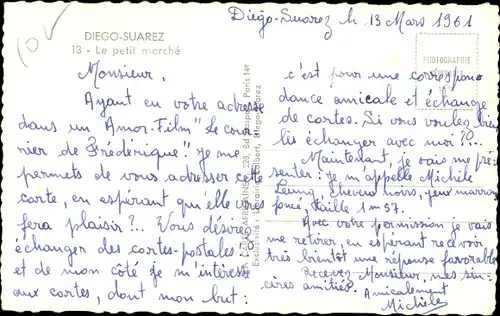 Diégo-Suarez le 13 Mars 1961
DIEGO-SUAREZ
13 - Le petit marché
PHOTOGRAPHIE
Monsieur,
Ayant eu votre adresse
dans un Amor-Film "Le cour-
rier de Frédérique". Je me
permets de vous adresser cette
carte, en espérant qu'elle vous
fera plaisir?.. Vous désirez
échanger des cartes-postales
et de mon côté je m'intéresse
aux cartes, dont mon but:
c'est pour une correspon
dance amicale et échange
de cartes. Si vous voulez bien
les échanger avec moi?...
Maintenant, je vais me pré
senter: je m'appelle Michèle
Leung, cheveu noirs, yeux marron
foncé, taille 1m57.
Avec votre permission je vais
me retirer, en espérant recevoir
très bientôt une réponse favorable
Recevez Monsieur, mes sin-
cères amitiés. Amicalement
Michèle
228, Bd Raspail, Paris 14e
Exclusivité Diego-Suarez